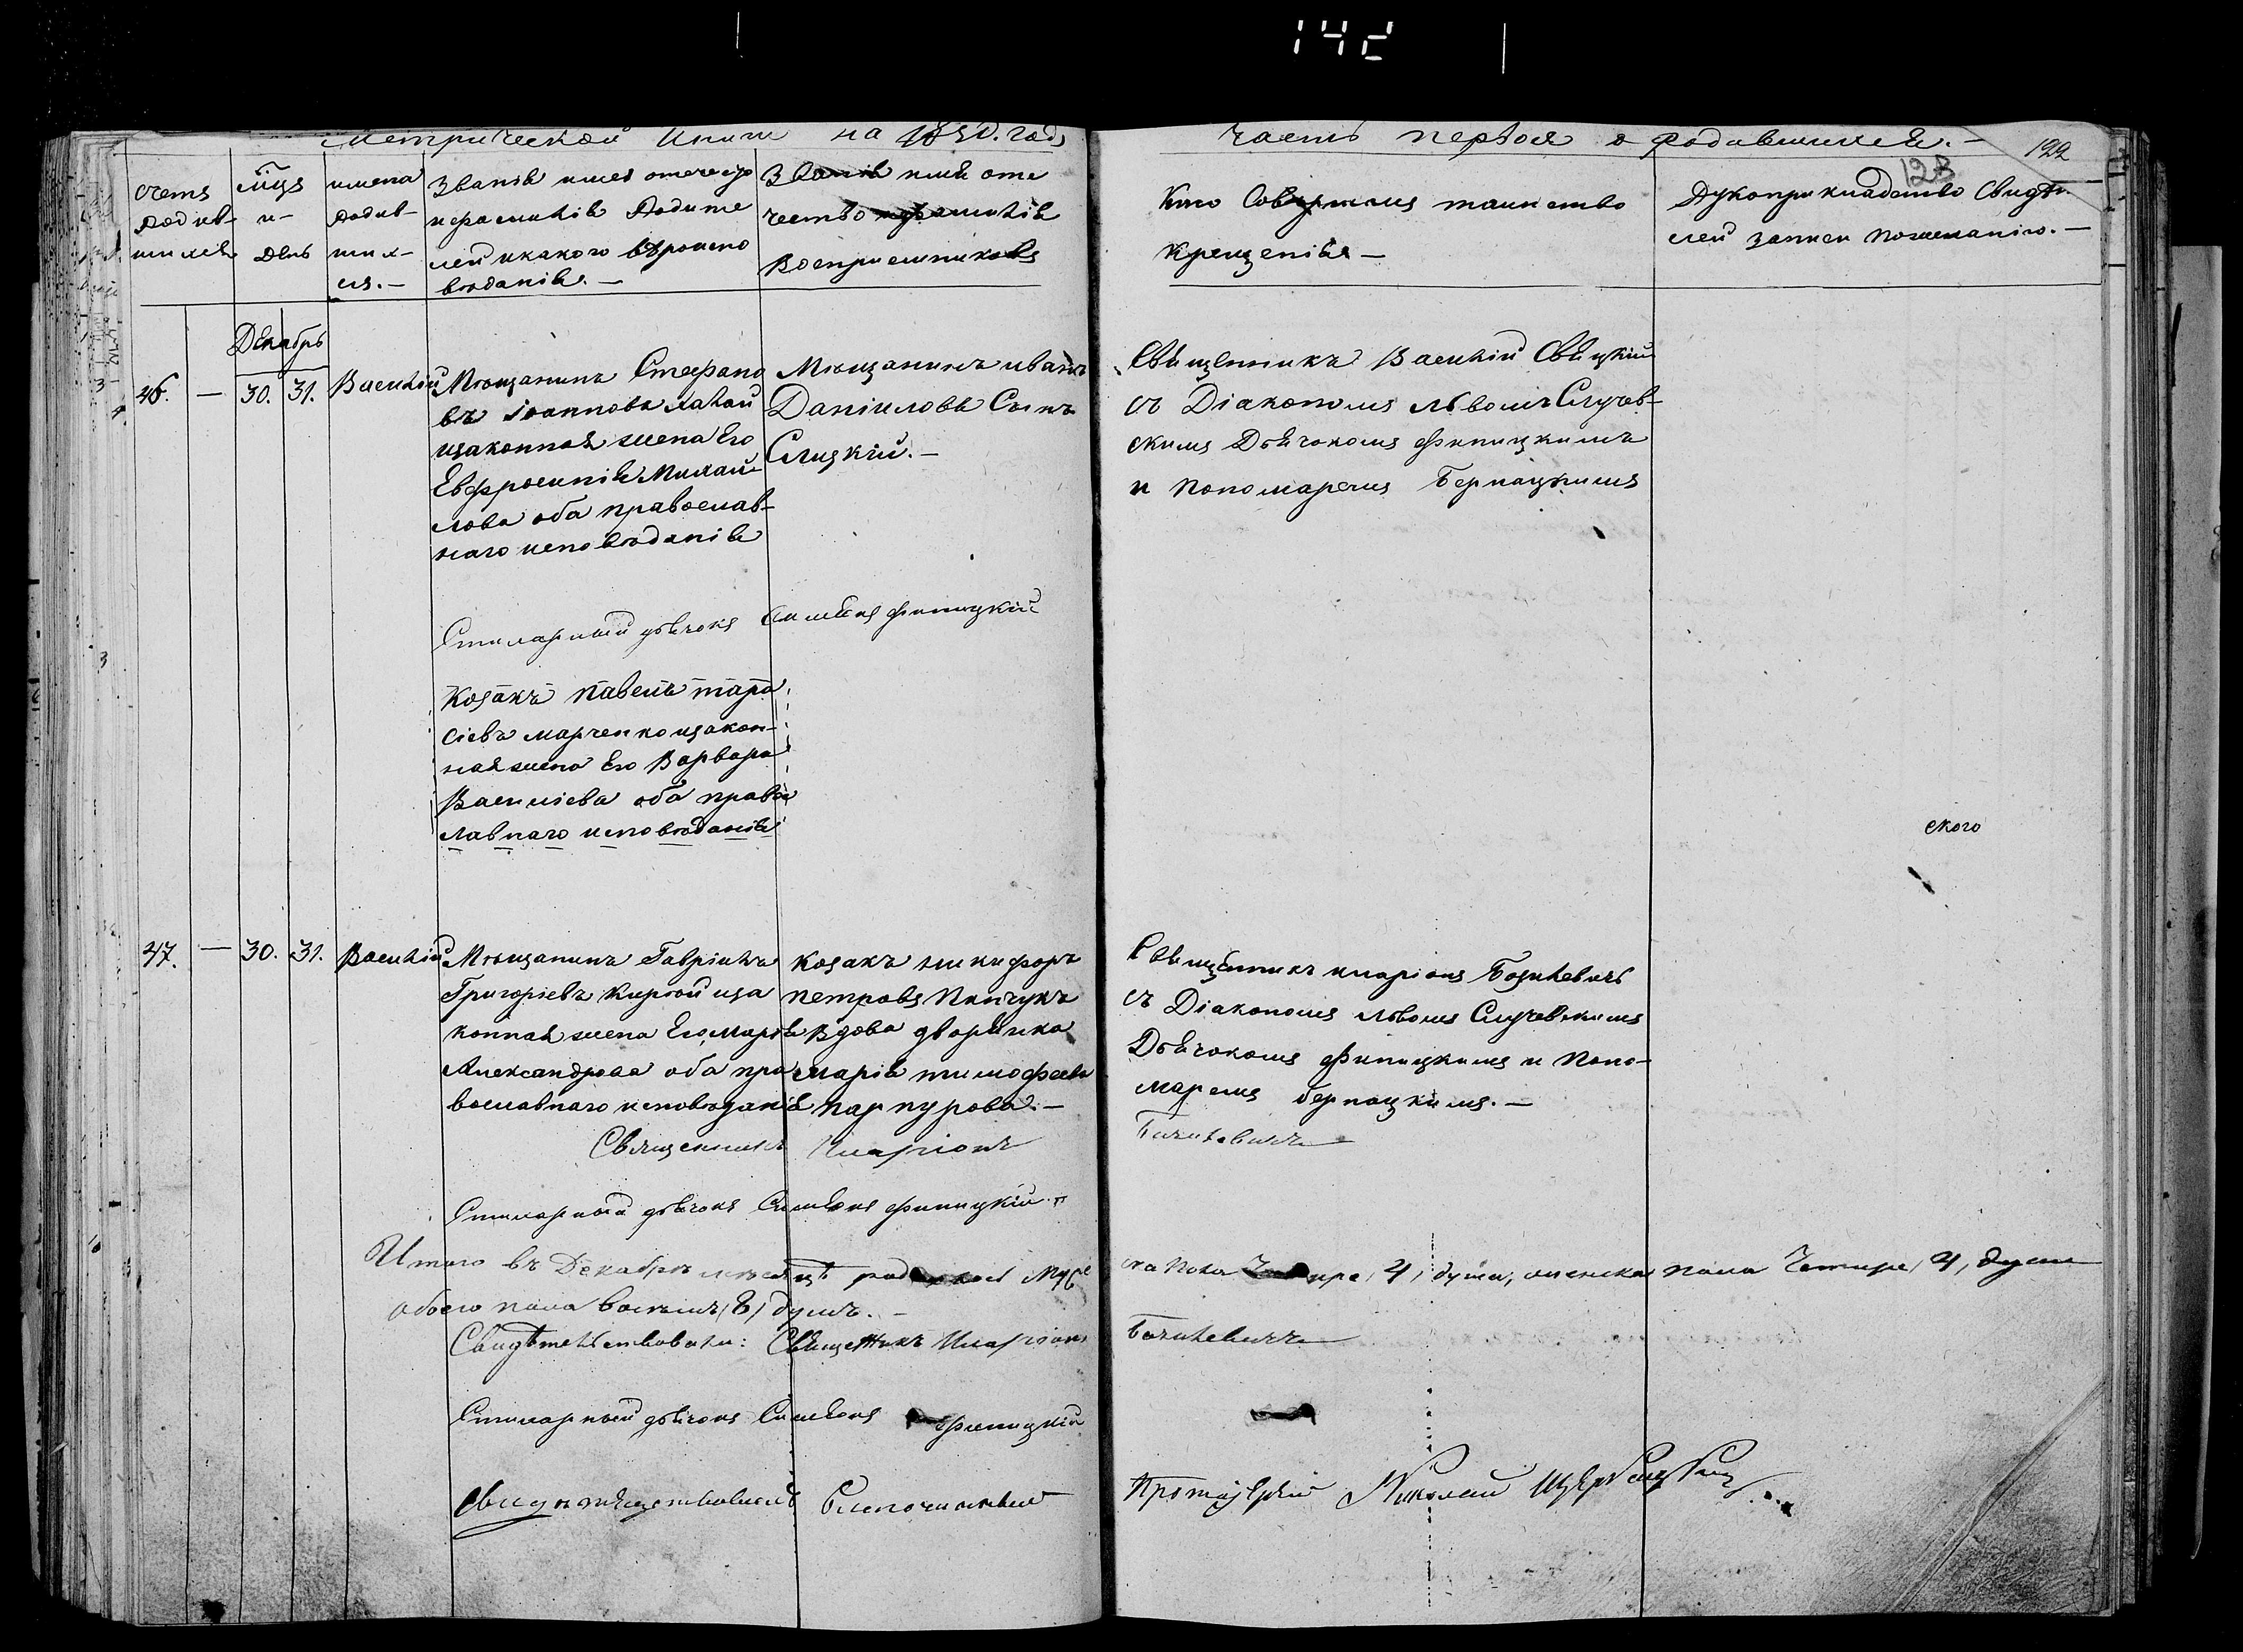 142
Метрической книги на 1850. годъ
часть первоя о родившихся.-
122
123
счетъ родив-шихся
мцъ и день
имена родив-ших-ся.-
Званiя имея отечество
и фамилiя родите
лей и какого вѣроиспо
вѣданiя.-
Званiя имя оте
чество и фамилiя
воспрiемниковъ
Кто совершалъ таинство
крещенiя-
Рукоприкладство свидѣте
лей записи по желанiю.-
Декабрь
46. - 30. 31. Василiй
Мѣщанинъ Стефанъ
Iоанновъ
изаконная жена Его
Евфросинiя Михай
лова оба православ-
наго исповѣданiя
Мѣщанинъ иванъ
Данiиловъ Сынъ
Слуцкiй.-
Священникъ Василiй Свѣцкiй
съ Дiакономъ Львомъ Случев-
скимъ Дьячкомъ Финицкимъ
и Пономаремъ Бернацкимъ
дьячокъ Симеонъ финицкiй
Козакъ Павелъ тара
сiевъ марченко изакон-
ная жена Его Варвара
Василiева оба право
лавнаго исповѣданiя
ского
47. - 30. 31. Василiй
Мѣщанинъ Гаврiилъ
Григорiевъ иза
конная жена Его марiя
Александрова оба пра
вославнаго исповѣданiя
козакъ никифоръ
петровъ Пинчукъ
Вдова дворянка
марiя тимофеева
парпурова.-
Священникъ иларiонъ Базилевичь
съ Дiакономъ Львомъ Случевскимъ
Дьячкомъ Финицкимъ и Поно-
маремъ бернацкимъ.-
Священникъ Иларiонъ
Базилевичъ
дьячокъ Симеонъ финицкiй
Итого въ Декабрѣ месяцѣ муже
ска пола 4, души, женска пола Четыре, 4, души
обоего пола восемь, 8, душъ.-
Свидѣтельствовали: Священникъ Иларiонъ
Базилевичъ
дьячокъ Симеонъ финицкiй
Свидѣтельствовалъ Благочинный
Протоiерей Николай